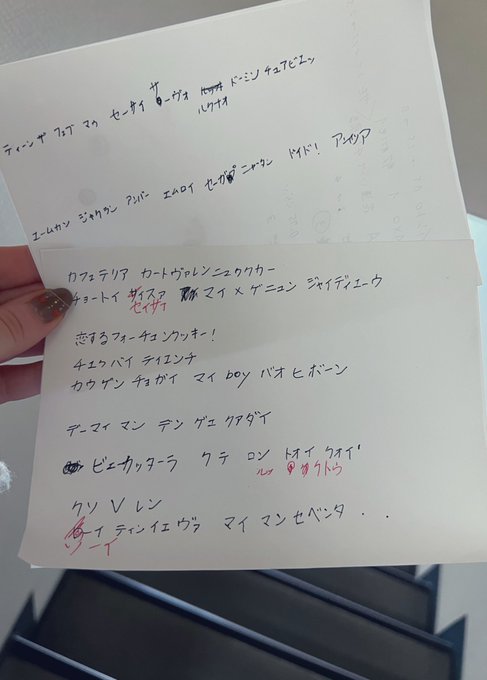 ティーンヤ フェブ マウ セーサイ サーヴォ ルクナオ ドーミン チュアビエッ
エームカン ジャウタン アンバー エムロイ セーガプ ニャータン ドイド! アンツア
カフェテリア カートヴァレンニュククカー
チョートイ セイサイ マイ メゲニュン ジャイディエーウ
恋するフォーチュンクッキー!
チェウバイ ティエンチ
カウゲン チョガイ マイ boy バオ ヒ ボーン
デーマイ マン デン ゲュ クアダイ
ビエカッターラ クテ ロン トオイ クオイ
ルッ クトウ
クソ V レン
ソーイ ティンイエ ヴァ マイ マン セベンタ . .